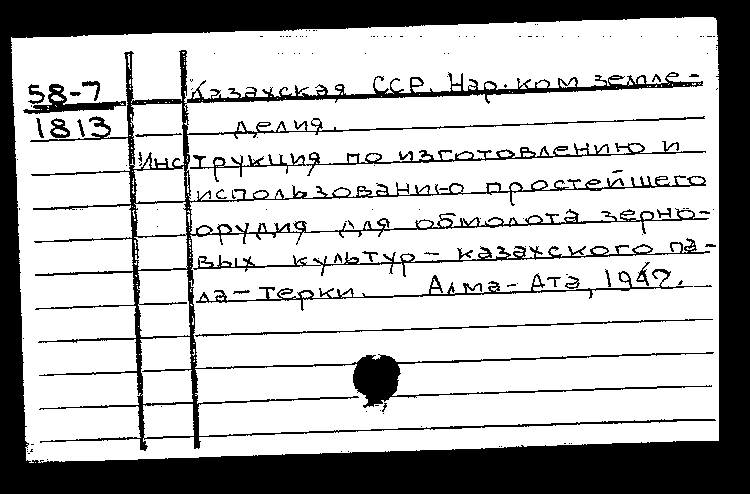 58-7
1813
Казахская ССР. Нар. ком земле-
делия.
Инструкция по изготовлению и
использованию простейшего
орудия для обмолота зерно-
вых культур - казахского па-
ла-терки. Алма-Ата, 1942.